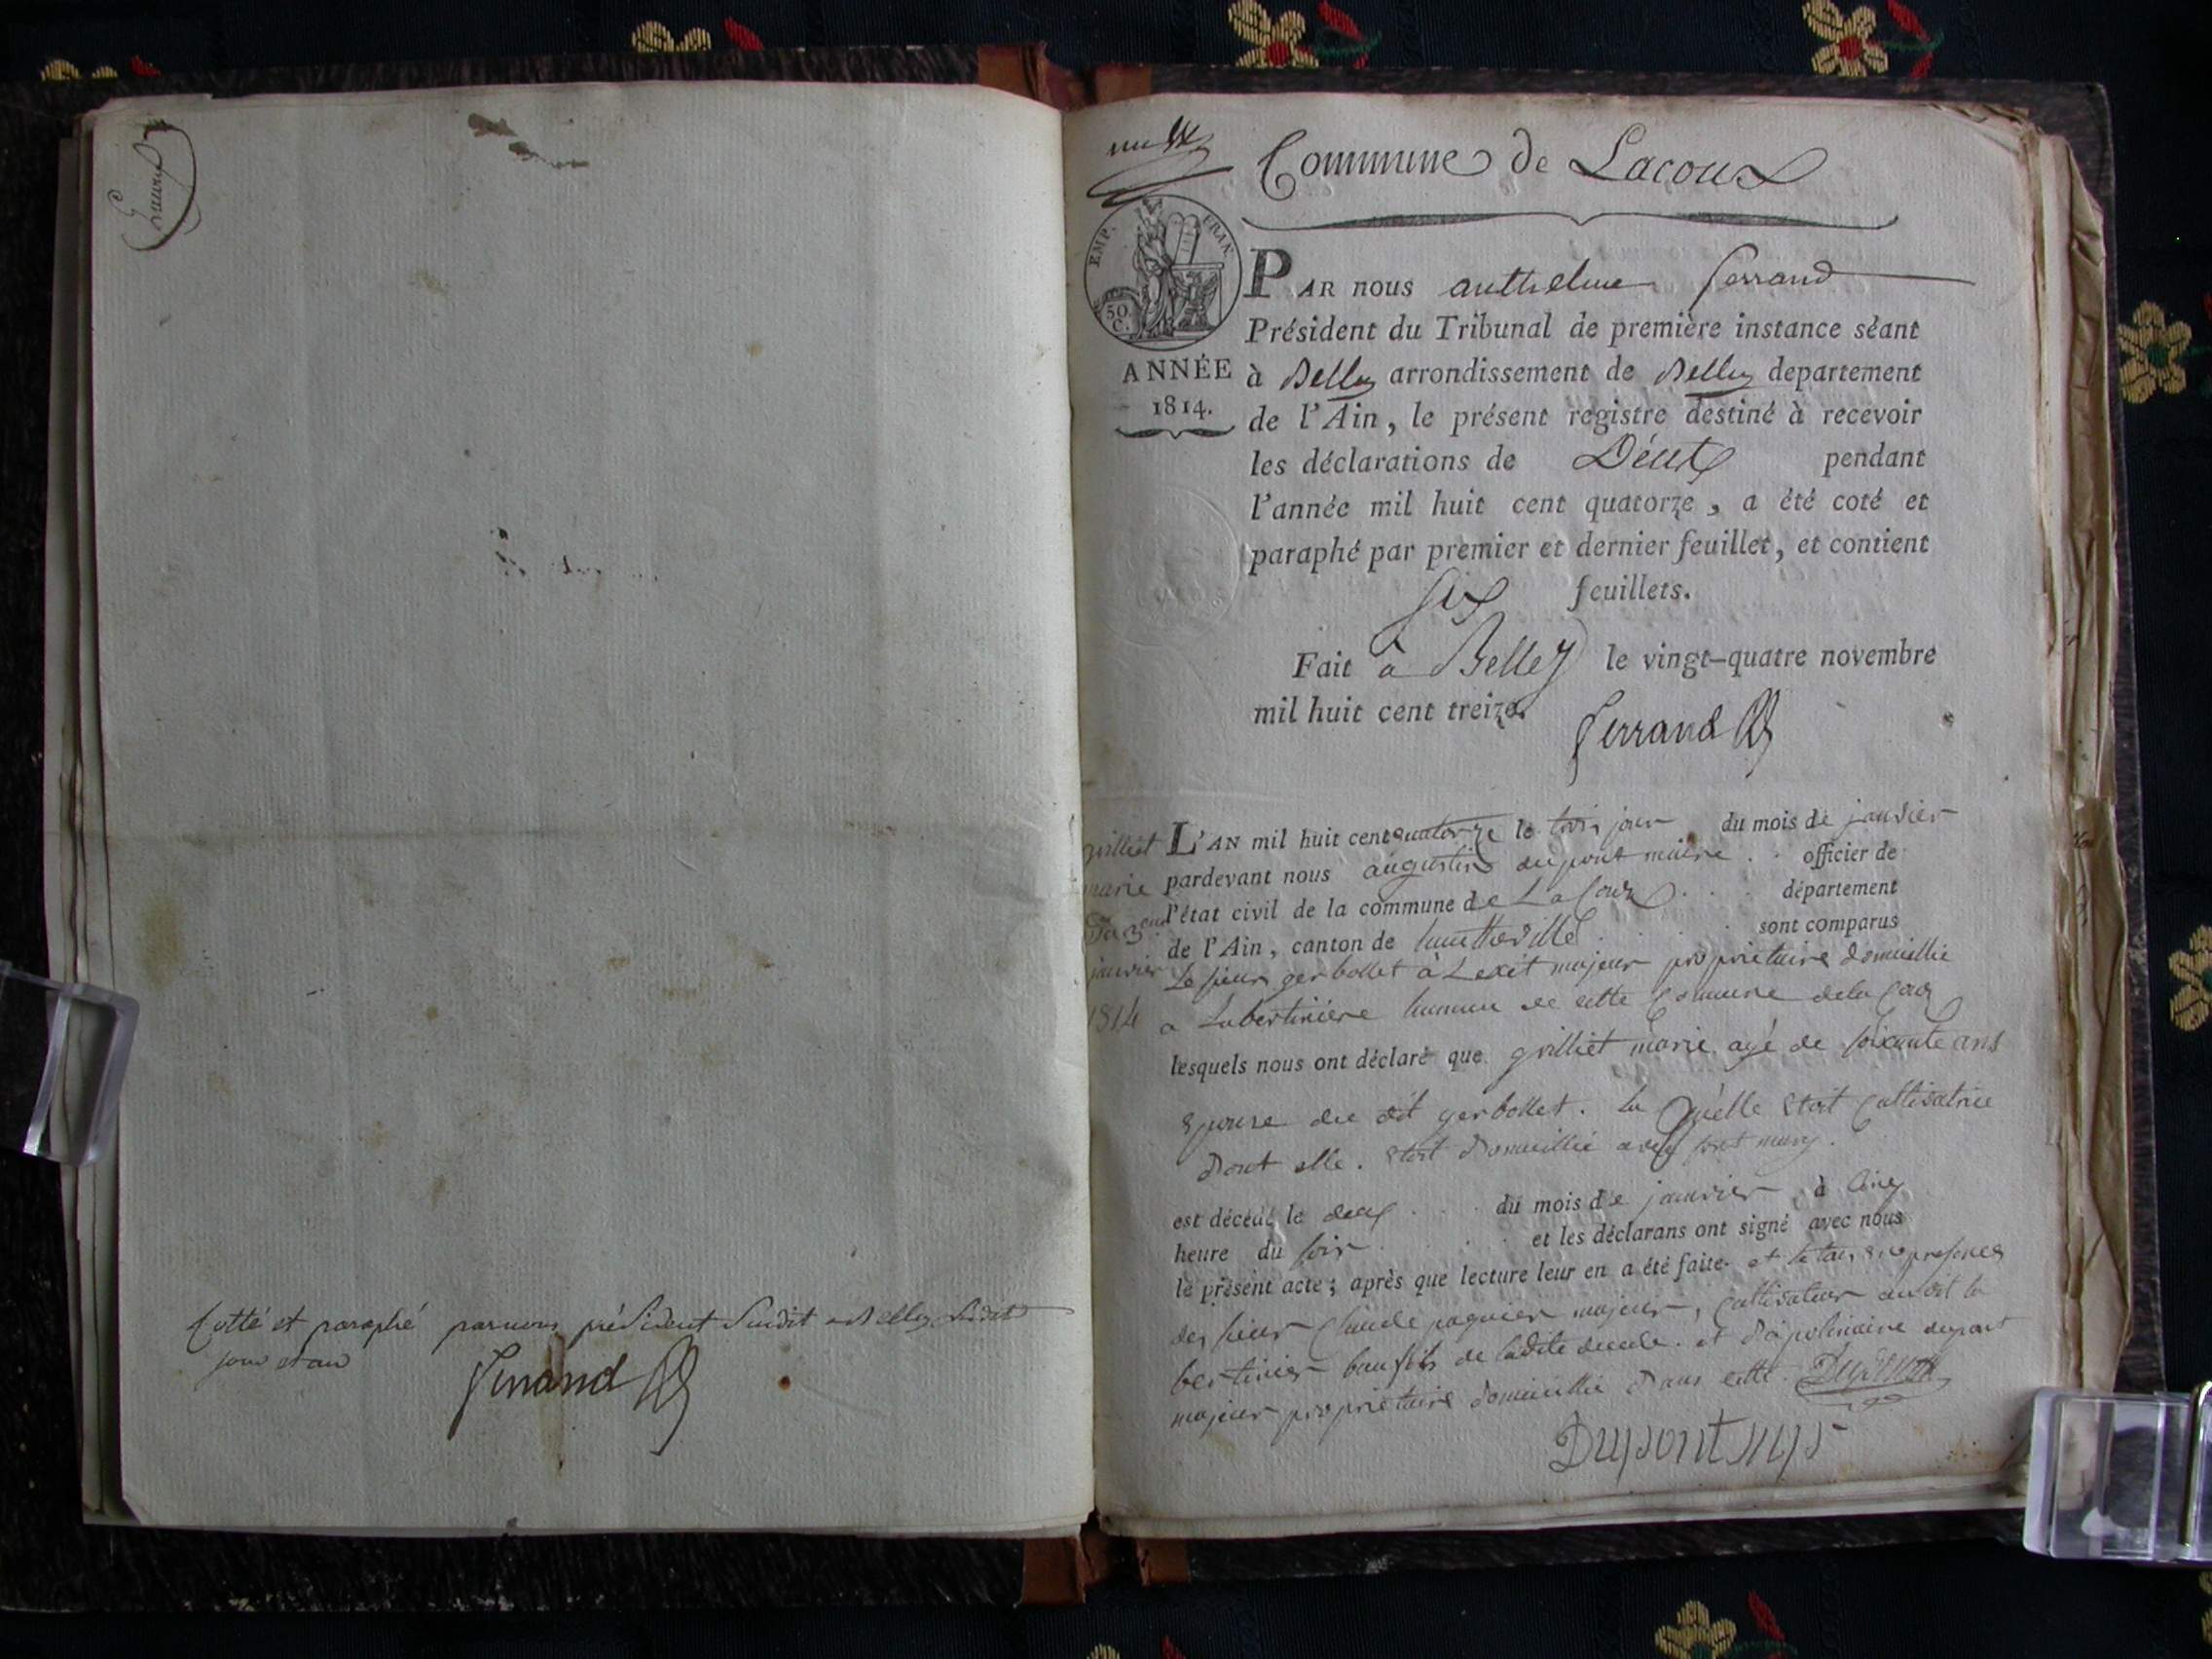 Cotté et paraphé par nous président susdit a Belley lesdits
jour et an
Ferrand
Commune de Lacoux
EMP. FRAN.
50
C.
ANNÉE
1814.
PAR nous anthelme ferrand
Président du Tribunal de première instance séant
à Belley arrondissement de Belley departement
de l'Ain, le présent registre destiné à recevoir
les déclarations de Décès pendant
l'année mil huit cent quatorze, a été coté et
paraphé par premier et dernier feuillet, et contient
six feuillets.
Fait à Belley le vingt-quatre novembre
mil huit cent treize.
Ferrand
grilliet
marie
janvier
1814
L'AN mil huit cent quatorze le trois jour du mois de janvier
pardevant nous augustin dupont maire officier de
l'état civil de la commune de La Coux département
de l'Ain, canton de hautteville sont comparus
Le sieur gerbollet majeur propriétaire domicillié
a Labertinière hameau de cette Commune dela Coux
lesquels nous ont déclaré que grilliet marie agé de soixante ans
Epouse du dit gerbollet. la quelle etoit Cultivatrice
dont elle. etoit domicillié avec sont mary.
est décédé le deux du mois de janvier à cinq
heure du soir et les déclarans ont signé avec nous
le présent acte; après que lecture leur en a été faite et
des sieur Claude paquier majeur, Cultivateur audit la
bertinier baufils de ladite et dapolinaire dupont
majeur propriétaire domicillié dans cette. Dupont
Dupont